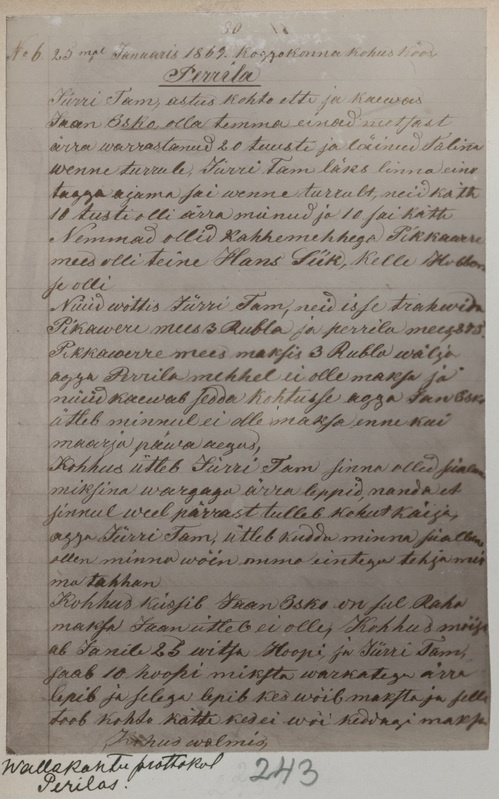 No 6 25mal Januaris 1869. Koggokonna kohus koos
Perrila
Jürri Tam, astus kohto ette ja kaewas
Jaan Esko olla temma einad metsast
ärra warrastanud 20 tuusti ja läinud Talina
wenne turrule, Jürri Tam läks linna eino
taaga ajama sai wenne turrult, neid kätte
10 tusti olli ärra münud ja 10 sai kätte
Nemmad ollid kahhemehhega Pikkawerre
mees olli teine Hans Siik, Kelle
se olli
Nüüd wottis Jürri Tam, neid isse trahwida
Pikawere mees 3 Rubla ja perrila mees
Pikkawerre mees maksis 3 Rubla wälja
agga Perrila mehhel ei olle maksa ja
nüüd kaewab sedda kohtusse agga Jan Esko
ütleb minnul ei olle maksa enne kui
maarja päwa aegas,
Kohhus ütleb Jürri Tam sinna olled
miksina wargaga ärra leppid, nanda et
sinnul weel pärrast tulleb kohut käija,
agga Jürri Tam, ütleb kudda minna
ollen minna wöin omma eintega tehja mis
ma tahhan
Kohhus küssib Jaan Esko on sul Raha
maksa Jaan ütleb ei olle, Kohhus möist
ab Janile 25 witsa Hoopi, ja Jürri Tam,
saab 10 hoopi miksta warkatega ärra
lepib ja selega lepib kes wöib maksta ja selle
toob kohto kätte kes ei wöi keddagi maksa
Kohus walmis,
Wallakohtu prottokol
Perilas.
243